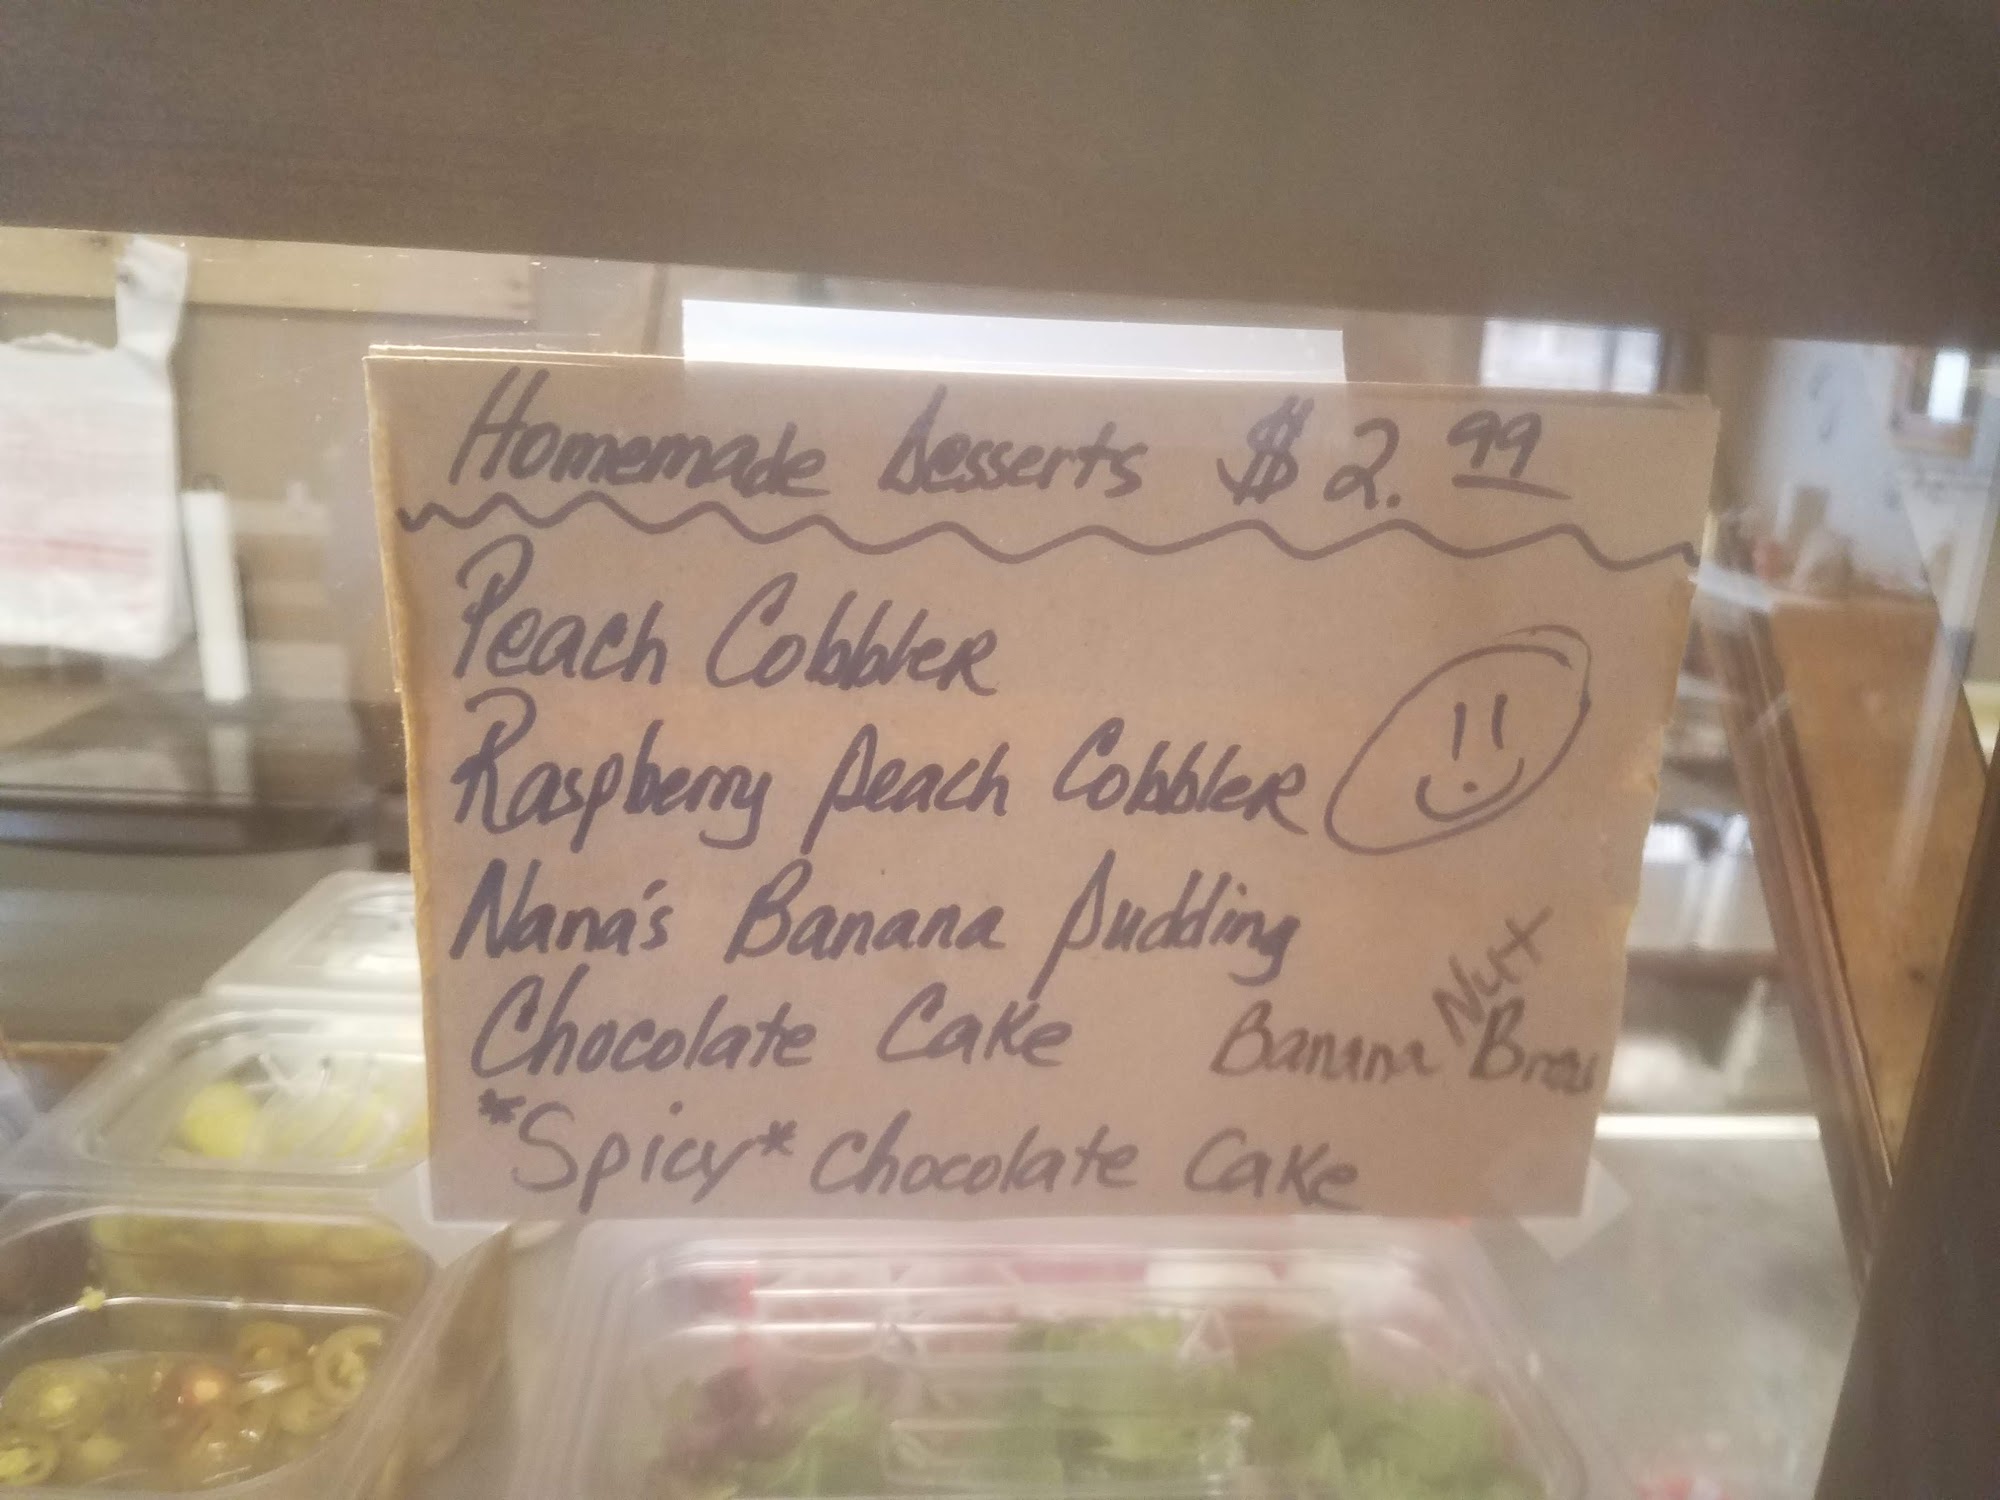 Homemade Desserts $2.99
Peach Cobbler
Raspberry Peach Cobbler
Nana's Banana Pudding
Chocolate Cake
Banana Nut
*Spicy* Chocolate Cake